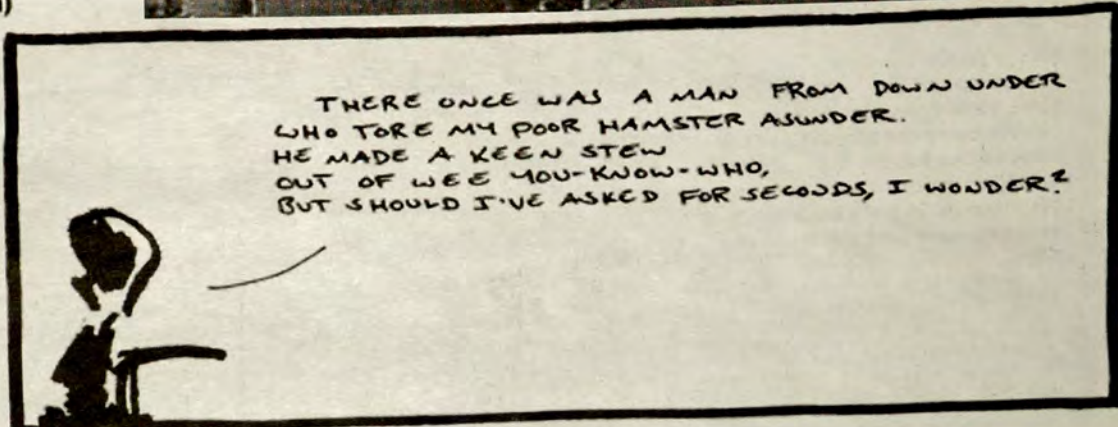 THERE ONCE WAS A MAN FROM DOWN UNDER
WHO TORE MY POOR HAMSTER ASUNDER.
HE MADE A KEEN STEW
OUT OF WEE YOU-KNOW-WHO,
BUT SHOULD I'VE ASKED FOR SECONDS, I WONDER?